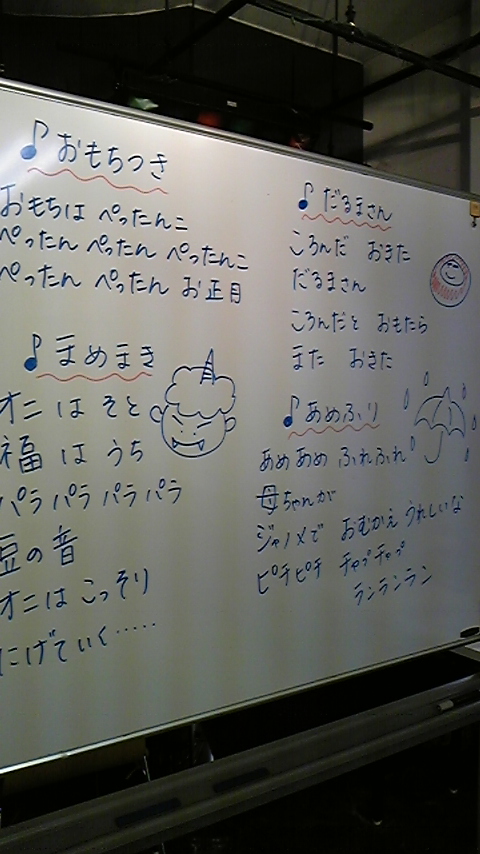 ♪おもちつき
おもちは ぺったんこ
ぺったん ぺったん ぺったんこ
ぺったん ぺったん お正月
♪まめまき
オニ は そと
福 は うち
パラ パラ パラ パラ
豆の音
オニは こっそり
にげていく……
♪だるまさん
ころんだ おきた
だるまさん
ころんだと おもたら
また おきた
♪あめふり
あめあめ ふれふれ
母ちゃんが
ジャノメで おむかえ うれしいな
ピチピチ チャプチャプ
ランランラン